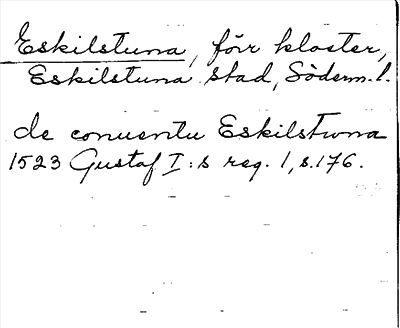 Eskilstuna, förr kloster,
Eskilstuna stad, Söderm. l.
de conuentu Eskilstwna
1523 Gustaf I:s reg. 1, s. 176.